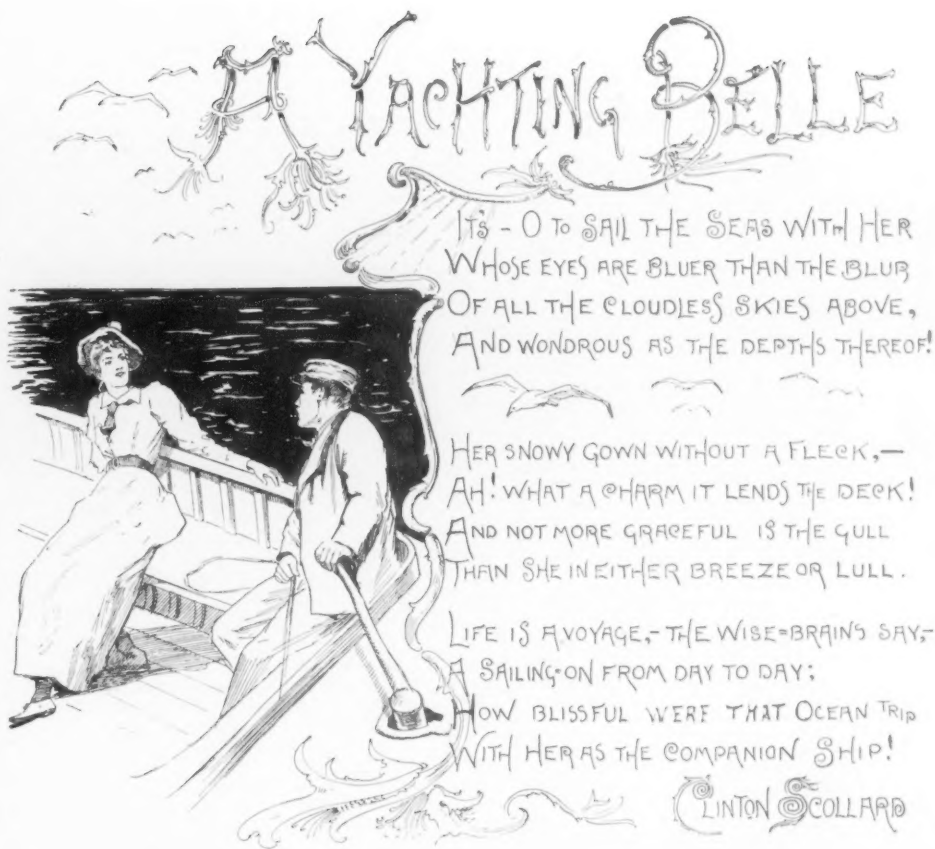 A YACHTING BELLE
IT'S - O TO SAIL THE SEAS WITH HER
WHOSE EYES ARE BLUER THAN THE BLUE
OF ALL THE CLOUDLESS SKIES ABOVE,
AND WONDROUS AS THE DEPTHS THEREOF!
HER SNOWY GOWN WITHOUT A FLECK,—
AH! WHAT A CHARM IT LENDS THE DECK!
AND NOT MORE GRACEFUL IS THE GULL
THAN SHE IN EITHER BREEZE OR LULL.
LIFE IS A VOYAGE,- THE WISE=BRAINS SAY,-
A SAILING-ON FROM DAY TO DAY;
HOW BLISSFUL WERE THAT OCEAN TRIP
WITH HER AS THE COMPANION SHIP!
CLINTON SCOLLARD